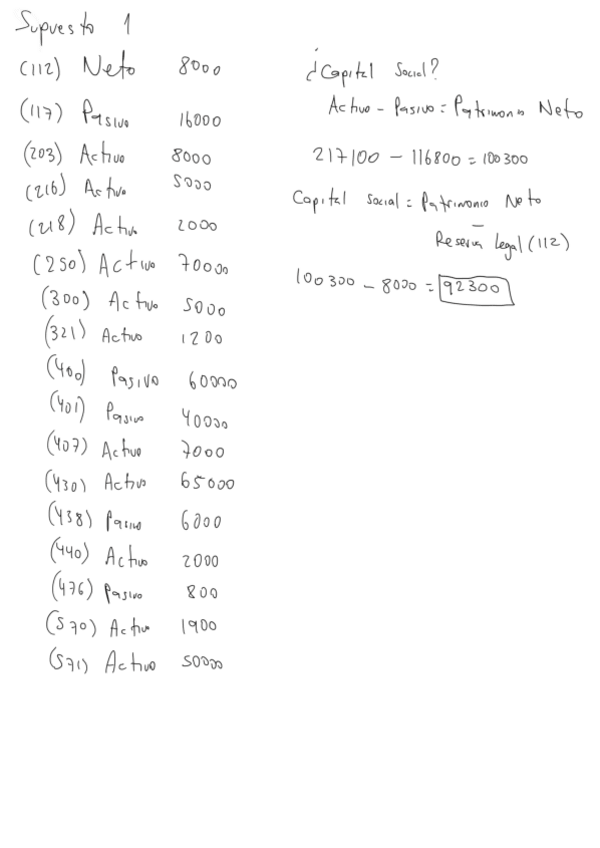 Supuesto 1
(112) Neto 8000
(117) Pasivo 16000
(203) Activo 8000
(216) Activo 5000
(218) Activo 2000
(250) Activo 70000
(300) Activo 5000
(321) Activo 1200
(400) Pasivo 60000
(401) Pasivo 40000
(407) Activo 7000
(430) Activo 65000
(438) Pasivo 6000
(440) Activo 2000
(476) Pasivo 800
(570) Activo 1900
(571) Activo 50000
¿Capital Social?
Activo - Pasivo = Patrimonio Neto
217100 - 116800 = 100300
Capital Social = Patrimonio Neto
-
Reserva legal (112)
100300 - 8000 = 92300